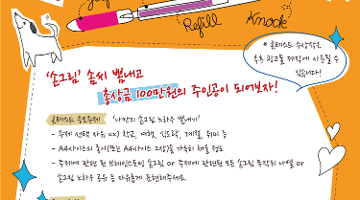 Refill
Knock
* 콘테스트 수상작은
추후 광고물 제작에 사용될 수
있습니다!
'손그림' 솜씨 뽐내고
총상금 100만원의 주인공이 되어보자!
콘테스트 응모주제 '나만의 손그림 노하우 뽐내기'
- 주제 선택 자유 ex) 학교, 여행, 식도락, 계절, 취미 등
- A4사이즈의 종이(또는 A4사이즈 저장)을 가능한 해줄 정도
- 주제에 관련 된 브레인스토밍 손그림 or 주제에 관련된 모든 손그림 무작위 나열 or
손그림 노하우 공유 등 자유롭게 표현해주세요.